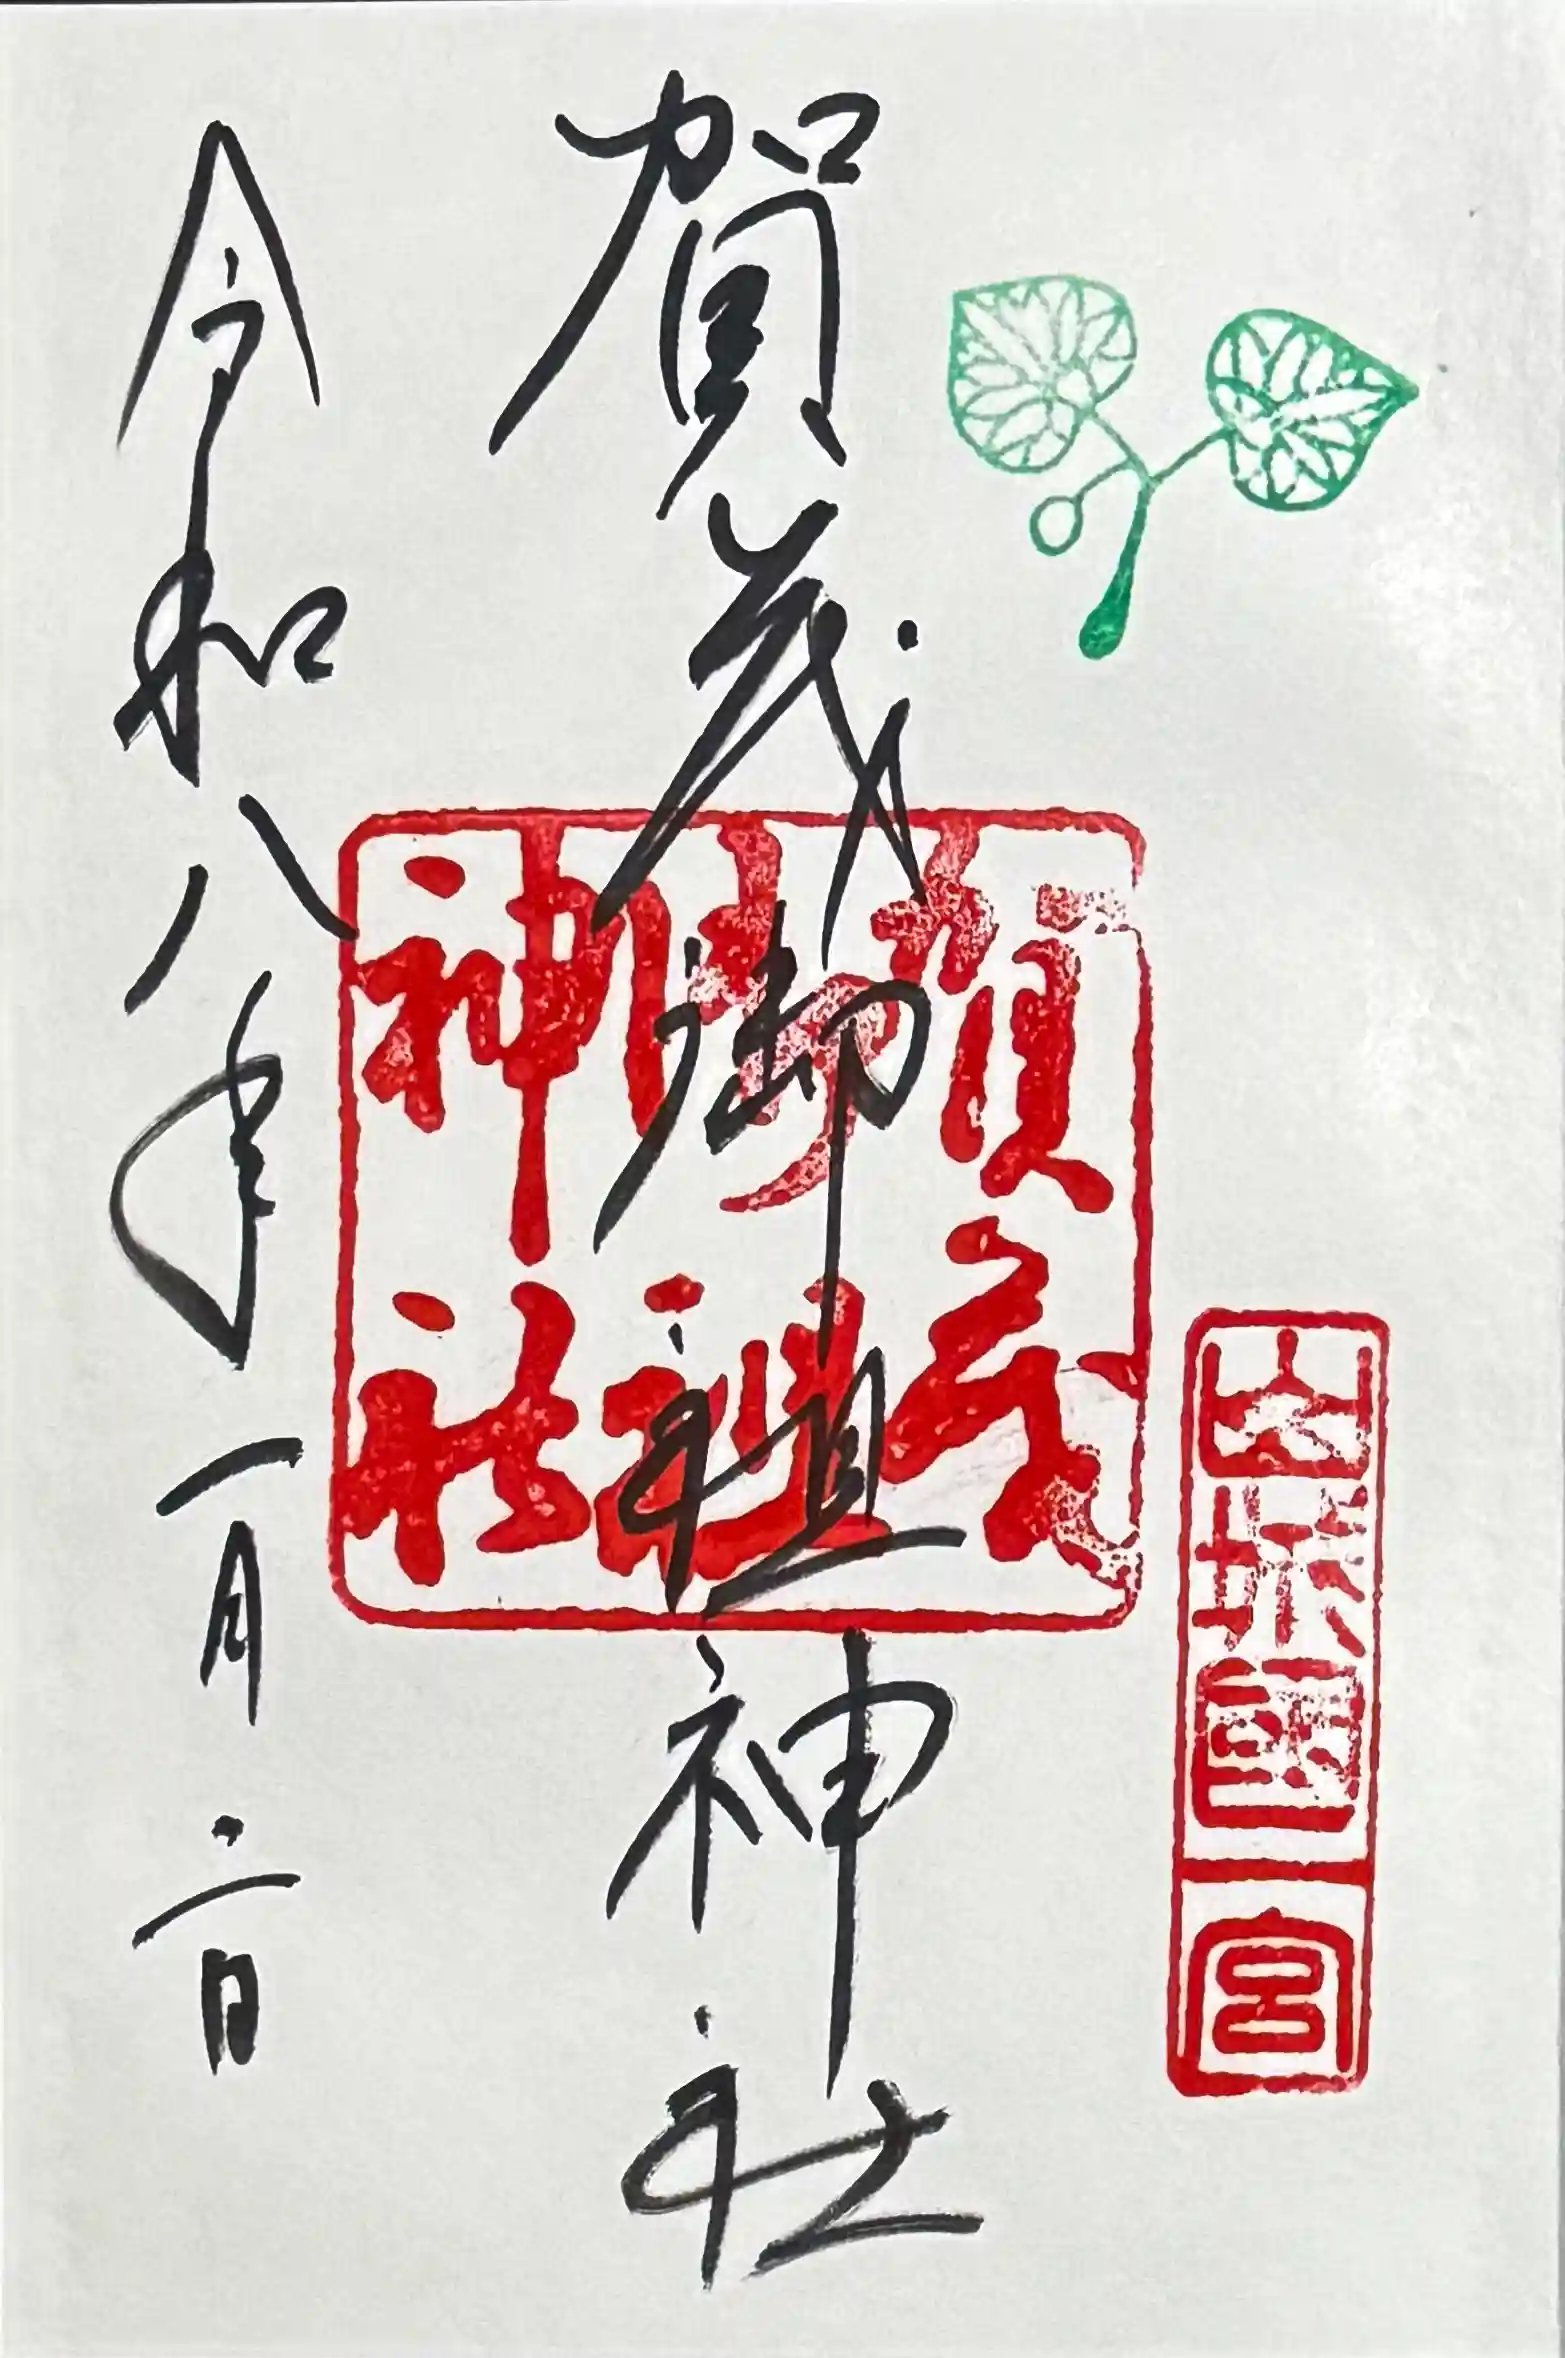 山城國一宮
賀茂御祖神社
賀茂
御祖
神社
令和八年一月二日